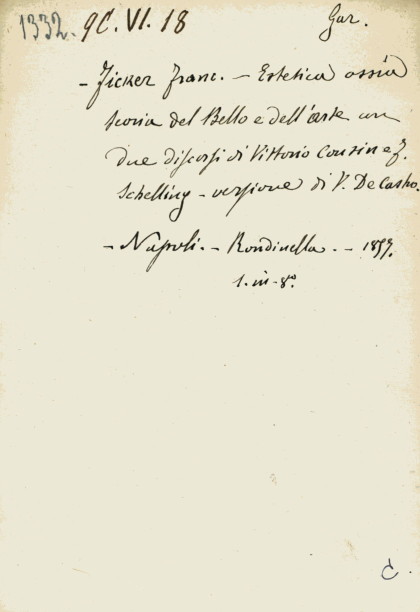 1332. 9C. VI. 18 Gar.
- Ficker Franc. - Estetica ossia
teoria del Bello e dell'arte con
due discorsi di Vittorio Cousin e F.
Schelling - versione di V. De Castro.
- Napoli. - Rondinella. - 1857.
1. in-8º
C.